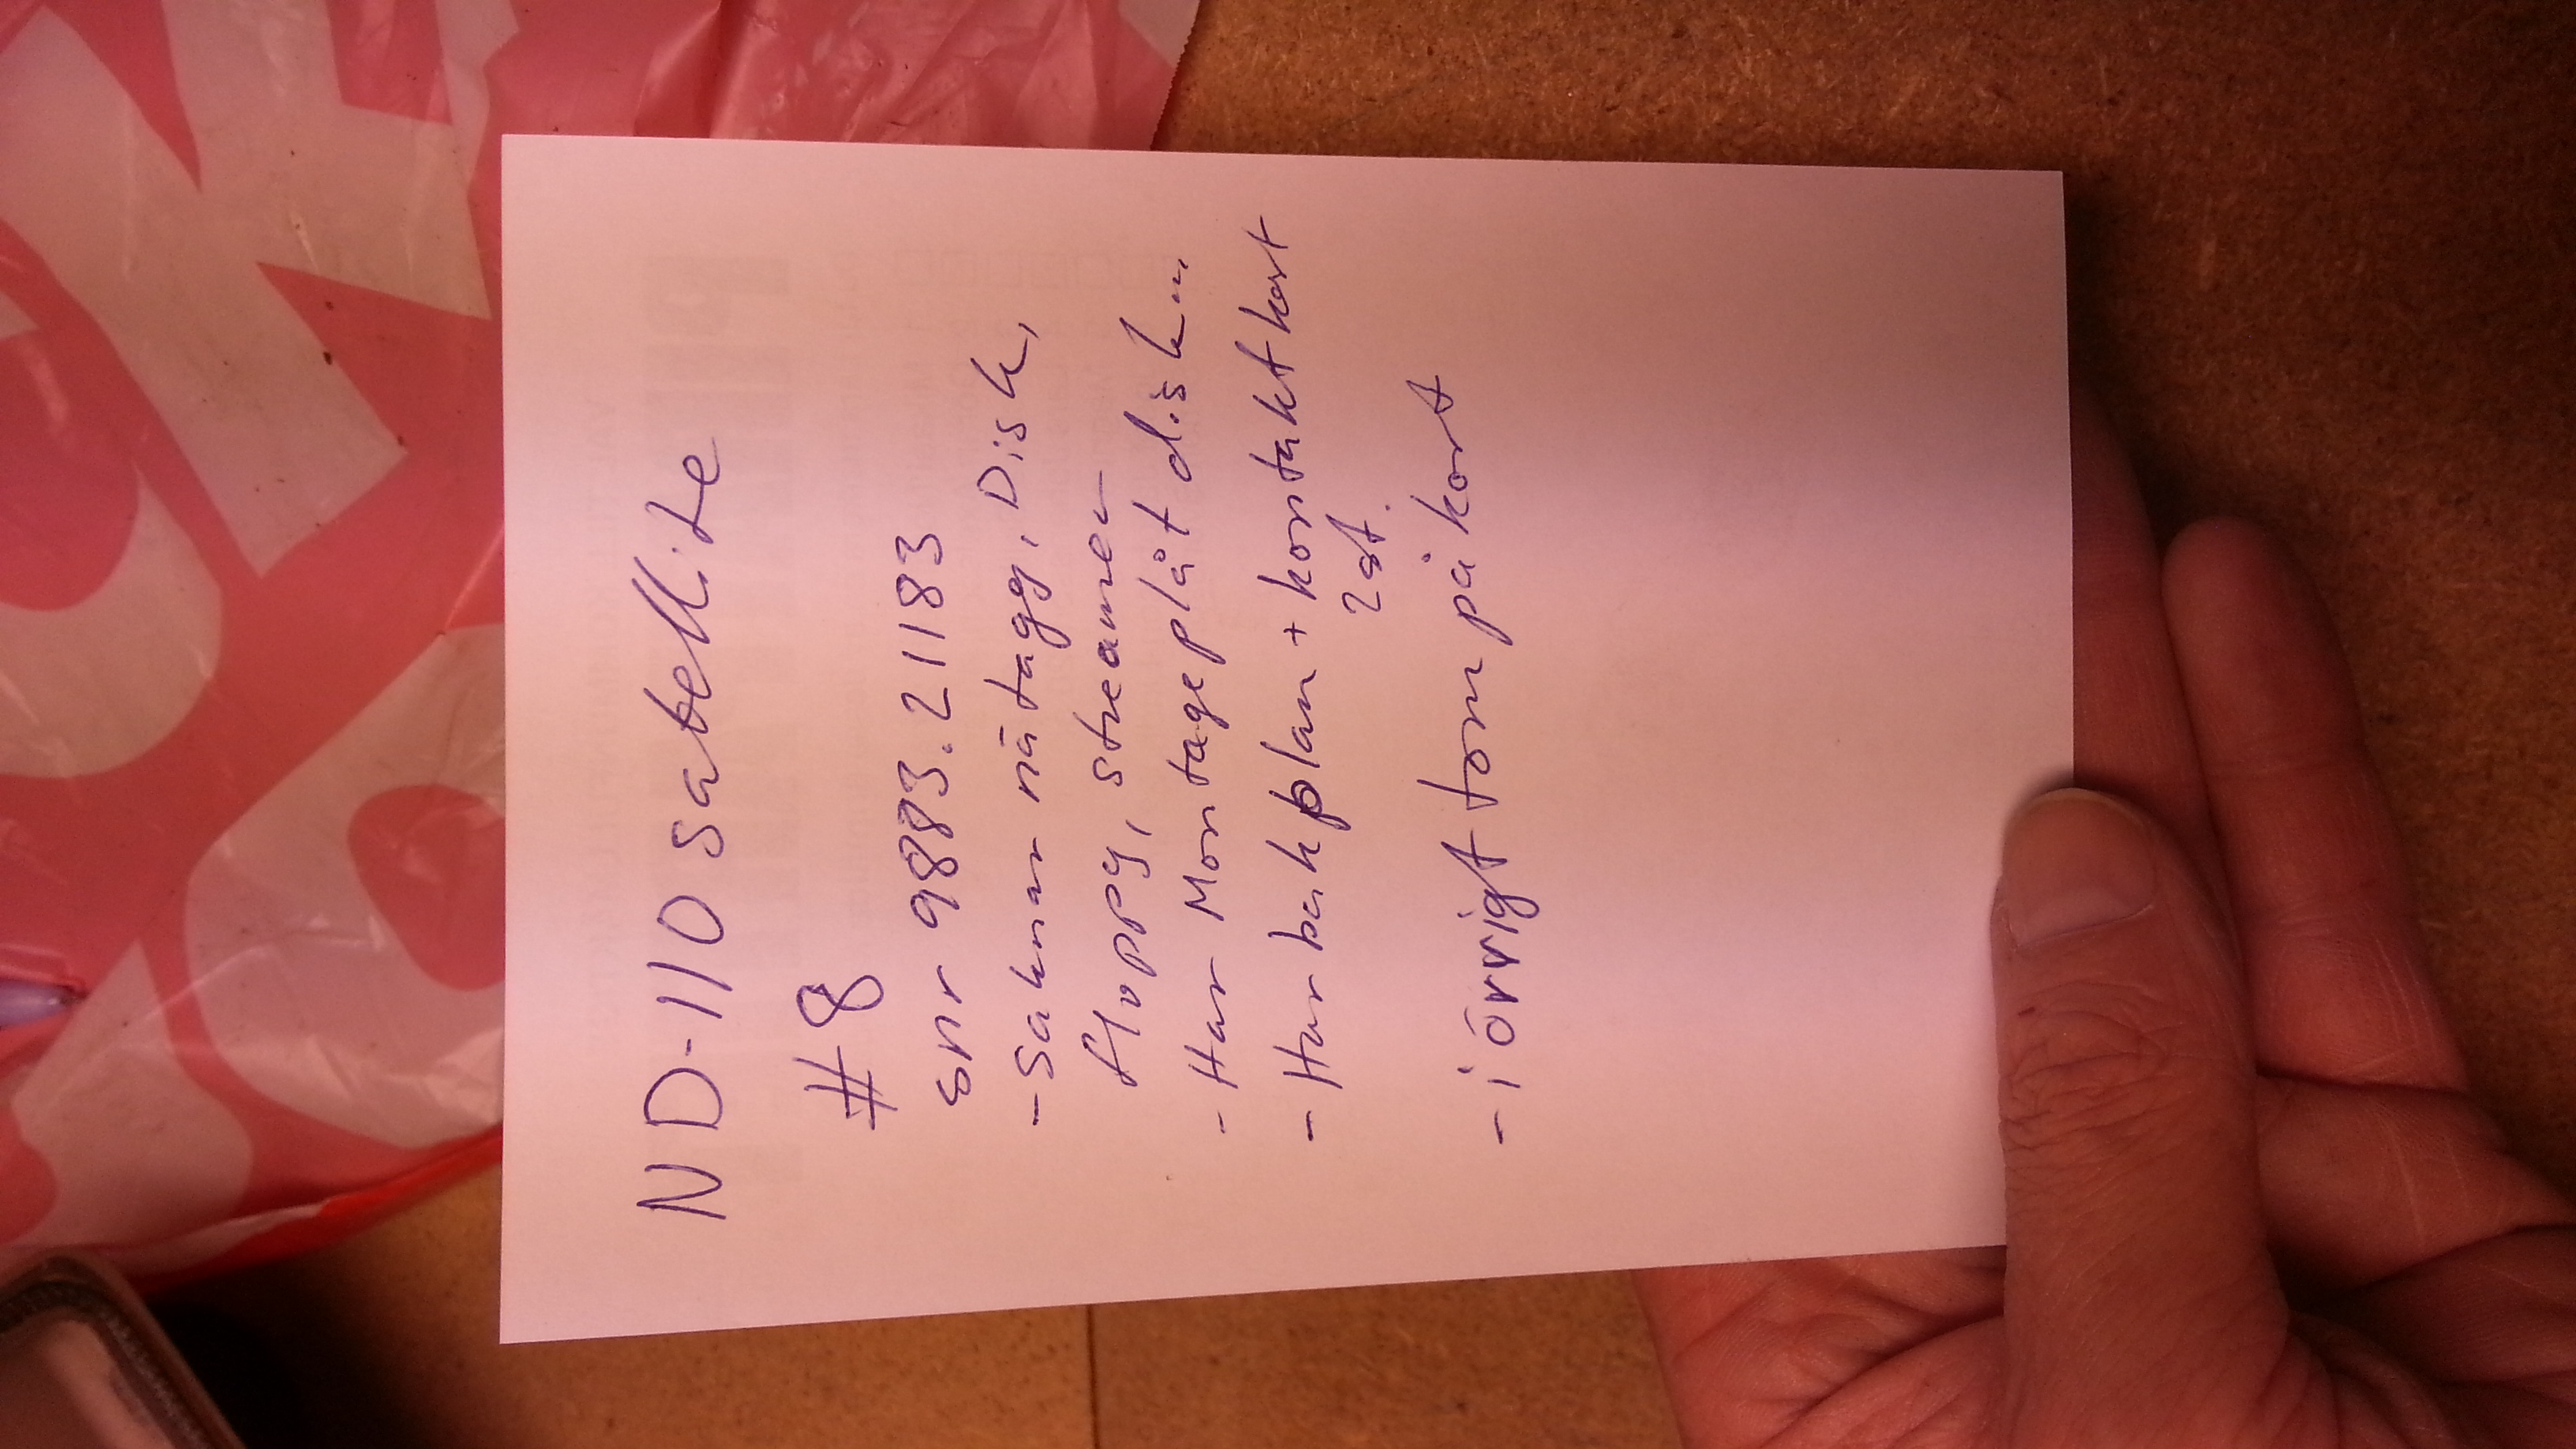 ND-110 Satellite
#8
snr 9883.21183
- Saknar nätagg, Disk,
floppy, streamer
- Har Montageplåt disk m.m.
- Har bakplan + kontaktkort
2st.
- i övrigt tom på kort